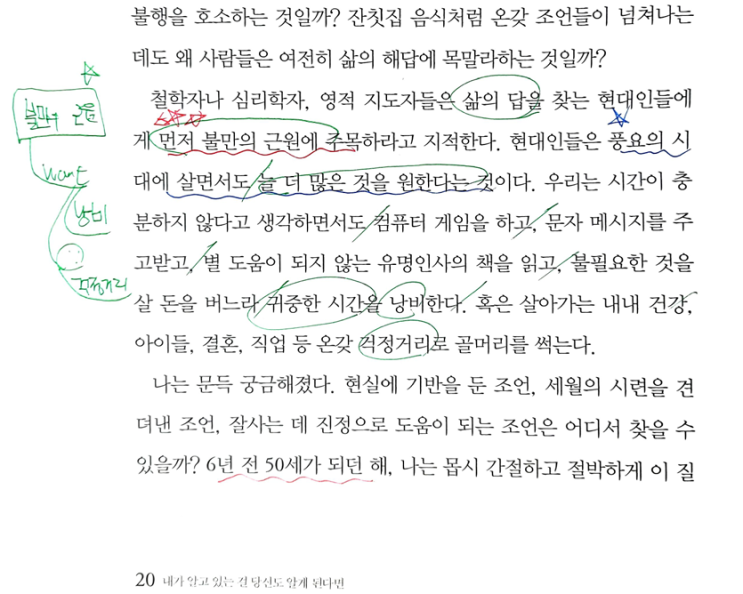 불행을 호소하는 것일까? 잔칫집 음식처럼 온갖 조언들이 넘쳐나는
데도 왜 사람들은 여전히 삶의 해답에 목말라하는 것일까?
철학자나 심리학자, 영적 지도자들은 삶의 답을 찾는 현대인들에
게 먼저 불만의 근원에 주목하라고 지적한다. 현대인들은 풍요의 시
대에 살면서도 늘 더 많은 것을 원한다는 것이다. 우리는 시간이 충
분하지 않다고 생각하면서도 컴퓨터 게임을 하고, 문자 메시지를 주
고받고, 별 도움이 되지 않는 유명인사의 책을 읽고, 불필요한 것을
살 돈을 버느라 귀중한 시간을 낭비한다. 혹은 살아가는 내내 건강,
아이들, 결혼, 직업 등 온갖 걱정거리로 골머리를 썩는다.
나는 문득 궁금해졌다. 현실에 기반을 둔 조언, 세월의 시련을 견
뎌낸 조언, 잘사는 데 진정으로 도움이 되는 조언은 어디서 찾을 수
있을까? 6년 전 50세가 되던 해, 나는 몹시 간절하고 절박하게 이 질
20 내가 알고 있는 걸 당신도 알게 된다면
want
낭비
걱정거리